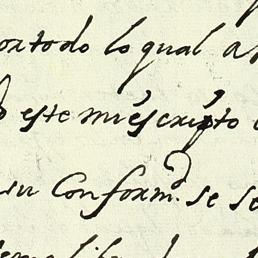 por todo lo qual a
este mi escripto
su Conformd. se se